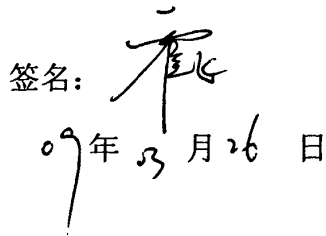 签名：
09年03月26日